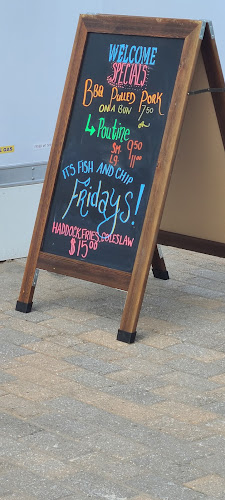 WELCOME
SPECIALS
BBQ PULLED PORK
ON A BUN 7.50
↳ Poutine
SM 9.50
LG 11.00
IT'S FISH AND CHIP
Fridays!
HADDOCK.FRIES.COLESLAW
$15.00
GAS